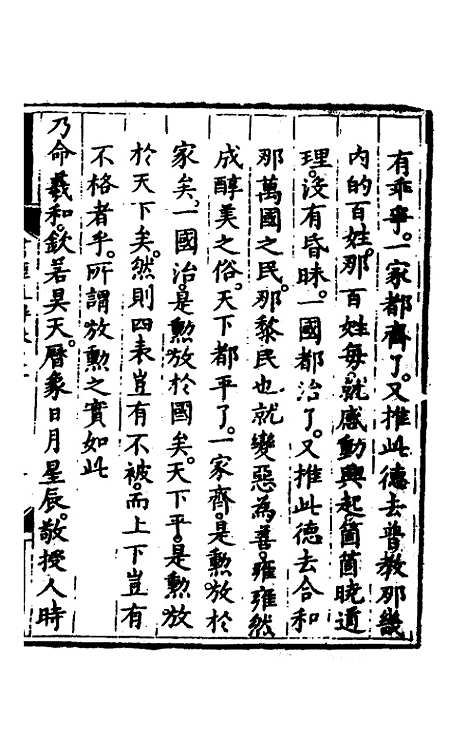 有乖爭。一家都齊了。又推此德去普教那畿
內的百姓。那百姓每就感動興起箇箇曉道
理。沒有昏昧。一國都治了。又推此德去合和
那萬國之民。那黎民也就變惡為善。雍雍然
成醇美之俗。天下都平了。一家齊。是勲放於
家矣。一國治。是勲放於國矣。天下平。是勲放
於天下矣。然則四表豈有不被。而上下豈有
不格者乎。所謂放勲之實如此
乃命羲和。欽若昊天。曆象日月星辰。敬授人時